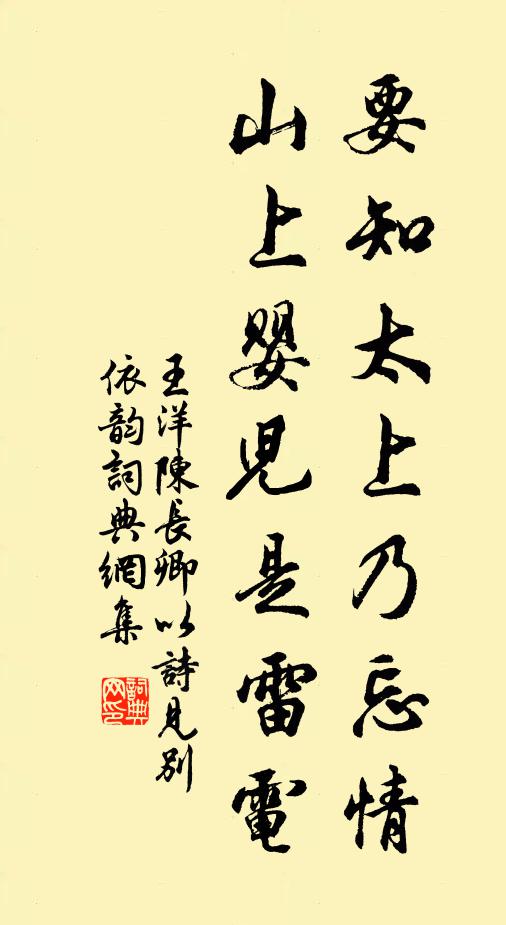 要知太上乃忘情
山上嬰児是雷電
王洋陳長卿以詩見別
依韵詞典網集
詞典
网印